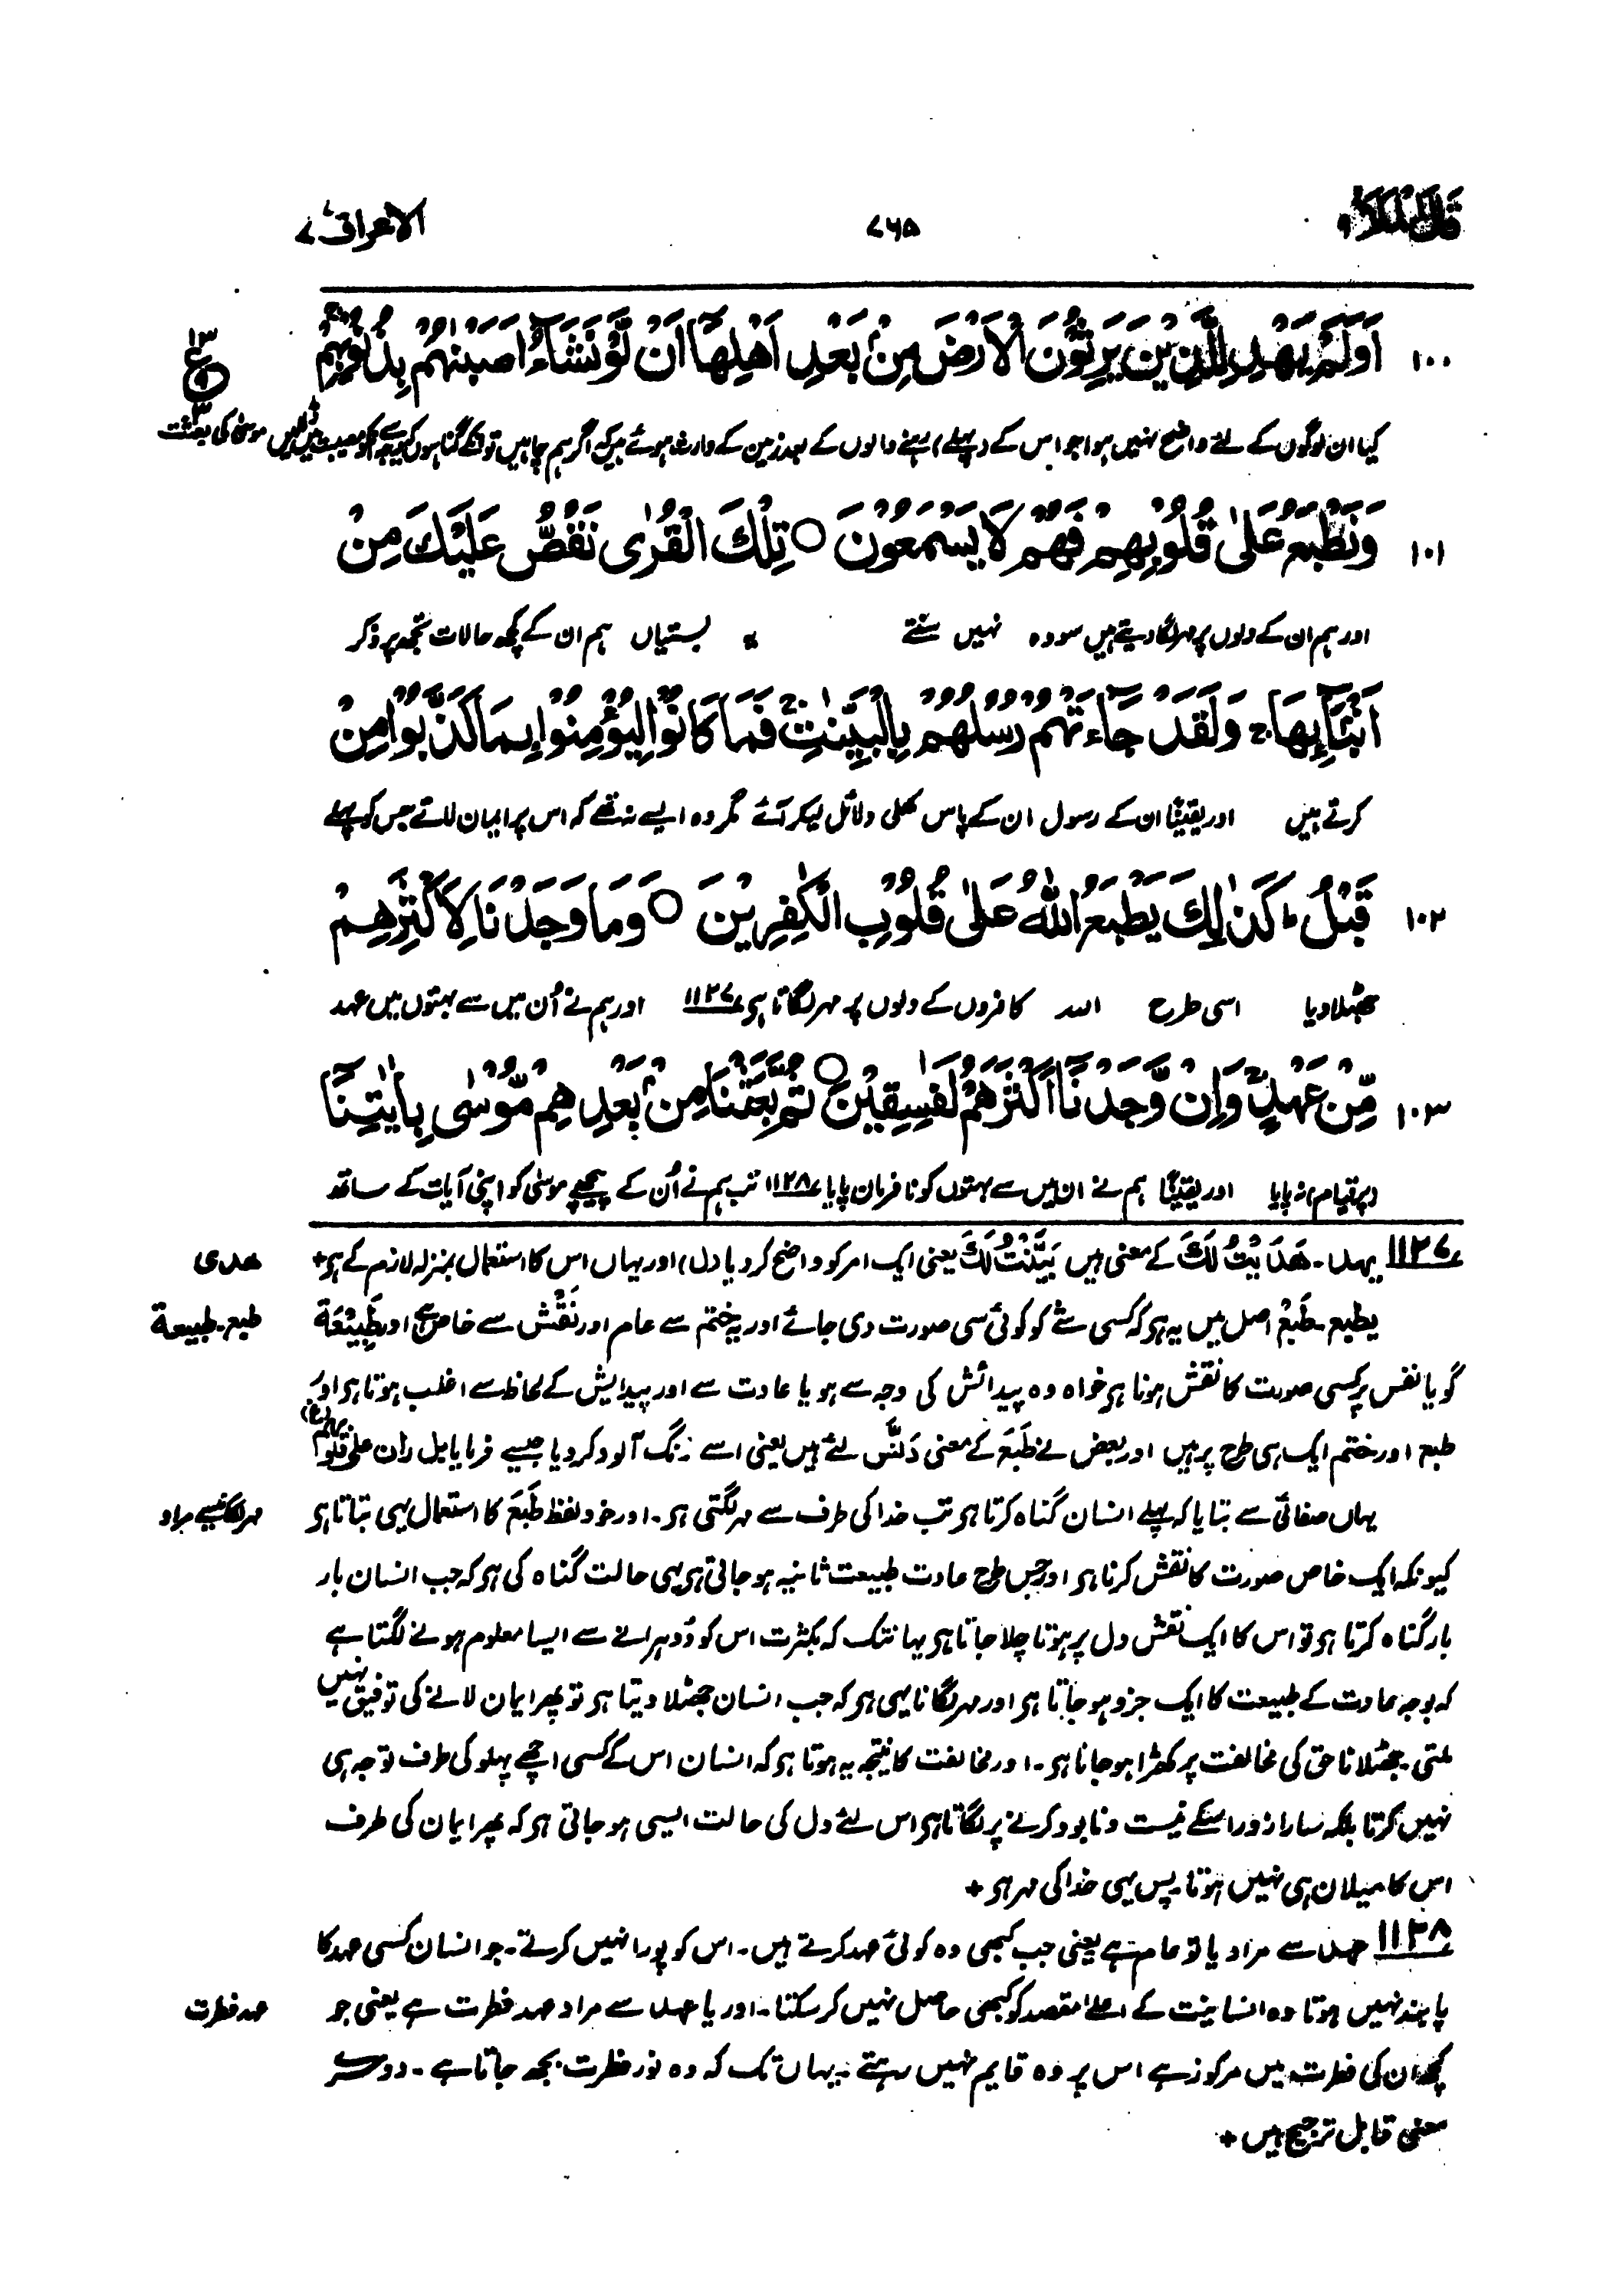 قال الملا ۹
۷۶۵
الاعراف ۷
۱۰۰ اَوَلَمْ يَهْدِ لِلَّذِيْنَ يَرِثُوْنَ الْاَرْضَ مِنْۢ بَعْدِ اَهْلِهَاۤ اَنْ لَّوْ نَشَآءُ اَصَبْنٰهُمْ بِذُنُوْبِهِمْ ۚ
کیا ان لوگوں کے لئے واضح نہیں ہوا جو اس کے (پہلے) رہنے والوں کے بعد زمین کے وارث ہوئے ہیں کہ اگر ہم چاہیں تو انکے گناہوں کی وجہ سے انکو مصیبت میں ڈالیں
موسیٰ کی بعثت
۱۰۱ وَنَطْبَعُ عَلٰى قُلُوْبِهِمْ فَهُمْ لَا يَسْمَعُوْنَ ○ تِلْكَ الْقُرٰى نَقُصُّ عَلَيْكَ مِنْ
اور ہم ان کے دلوں پر مہر لگا دیتے ہیں سو وہ نہیں سنتے یہ بستیاں ہم ان کے کچھ حالات تجھ پر ذکر
اَنْۢبَآئِهَا ۚ وَلَقَدْ جَآءَتْهُمْ رُسُلُهُمْ بِالْبَيِّنٰتِ ۚ فَمَا كَانُوْا لِيُؤْمِنُوْا بِمَا كَذَّبُوْا مِنْ
کرتے ہیں اور یقیناً ان کے رسول ان کے پاس کھلی دلائل لیکر آئے مگر وہ ایسے نہ تھے کہ اس پر ایمان لاتے جس کو پہلے
۱۰۲ قَبْلُ ؕ كَذٰلِكَ يَطْبَعُ اللّٰهُ عَلٰى قُلُوْبِ الْكٰفِرِيْنَ ○ وَمَا وَجَدْنَا لِاَكْثَرِهِمْ
جھٹلا دیا اسی طرح اللہ کافروں کے دلوں پر مہر لگاتا ہے ۱۱۲۷ اور ہم نے اُن میں سے بہتوں میں عہد
۱۰۳ مِّنْ عَهْدٍ ۚ وَاِنْ وَّجَدْنَاۤ اَكْثَرَهُمْ لَفٰسِقِيْنَ ○ ثُمَّ بَعَثْنَا مِنْۢ بَعْدِهِمْ مُّوْسٰى بِاٰيٰتِنَاۤ
(پر قیام) نہ پایا اور یقیناً ہم نے ان میں سے بہتوں کو نافرمان پایا ۱۱۲۸ تب ہم نے اُن کے پیچھے موسیٰ کو اپنی آیات کے ساتھ
۱۱۲۷ یہد۔ ھَدَیْتُ لَکَ کے معنی ہیں بَیَّنْتُ لَکَ یعنی ایک امر کو واضح کر دیا (ل) اور یہاں اس کا استعمال بمنزلہ لازم کے ہے+
ھدی
یطبع۔ طَبْعٌ اصل میں یہ ہے کہ کسی شے کو کوئی سی صورت دی جائے اور یہ ختم سے عام اور نَقْش سے خاص ہے اور طَبِیْعَة
طبع۔ طبیعة
گویا نفس پر کسی صورت کا نقش ہونا ہے خواہ وہ پیدائش کی وجہ سے ہو یا عادت سے اور پیدایش کے لحاظ سے اغلب ہوتا ہے اور
طبع اور ختم ایک ہی طرح پر ہیں اور بعض نے طَبَعَ کے معنی دَنَّسَ لئے ہیں یعنی اسے زنگ آلود کر دیا جیسے فرمایا بل ران علی قلوبہم (غ)
یہاں صفائی سے بتایا کہ پہلے انسان گناہ کرتا ہے تب خدا کی طرف سے مہر لگتی ہے۔ اور خود لفظ طَبَعَ کا استعمال یہی بتاتا ہے
مہر لگنے سے مراد
کیونکہ ایک خاص صورت کا نقش کرنا ہے اور جس طرح عادت طبیعت ثانیہ ہو جاتی ہے یہی حالت گناہ کی ہے کہ جب انسان بار
بار گناہ کرتا ہے تو اس کا ایک نقش دل پر ہوتا چلا جاتا ہے یہانتک کہ بکثرت اس کو دُوہرانے سے ایسا معلوم ہونے لگتا ہے
کہ بوجہ عادت کے طبیعت کا ایک جزو ہو جاتا ہے اور مہر لگانا یہی ہے کہ جب انسان جھٹلا دیتا ہے تو پھر ایمان لانے کی توفیق نہیں
ملتی۔ جھٹلانا حق کی مخالفت پر کھڑا ہو جانا ہے۔ اور مخالفت کا نتیجہ یہ ہوتا ہے کہ انسان اس کے کسی اچھے پہلو کی طرف توجہ ہی
نہیں کرتا بلکہ سارا زور اسکے نیست و نابود کرنے پر لگاتا ہے اس لئے دل کی حالت ایسی ہو جاتی ہے کہ پھر ایمان کی طرف
اس کا میلان ہی نہیں ہوتا پس یہی خدا کی مہر ہے+
۱۱۲۸ عہد سے مراد یا تو عام ہے یعنی جب کبھی وہ کوئی عہد کرتے ہیں۔ اس کو پورا نہیں کرتے۔ جو انسان کسی عہد کا
پابند نہیں ہوتا وہ انسانیت کے اعلےٰ مقصد کو کبھی حاصل نہیں کر سکتا۔ اور یا عہد سے مراد عہد فطرت ہے یعنی جو
عہد فطرت
کچھ ان کی فطرت میں مرکوز ہے اس پر وہ قایم نہیں رہتے۔ یہاں تک کہ وہ نور فطرت بجھ جاتا ہے۔ دوسرے
معنی قابل ترجیح ہیں+